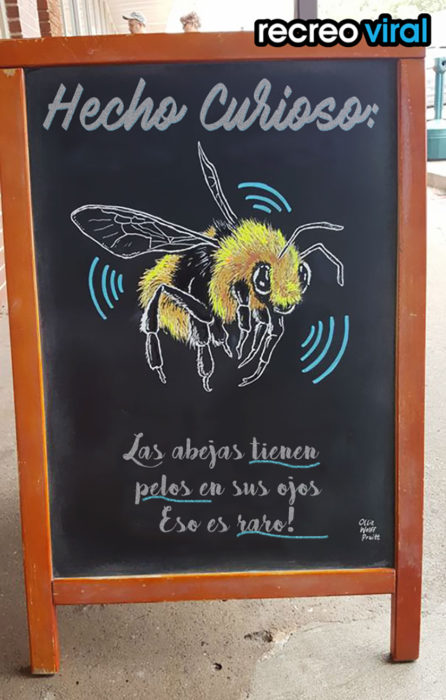 recreoviral
Hecho Curioso:
Las abejas tienen
pelos en sus ojos
Eso es raro!
Ollie
Wolff
Pruitt